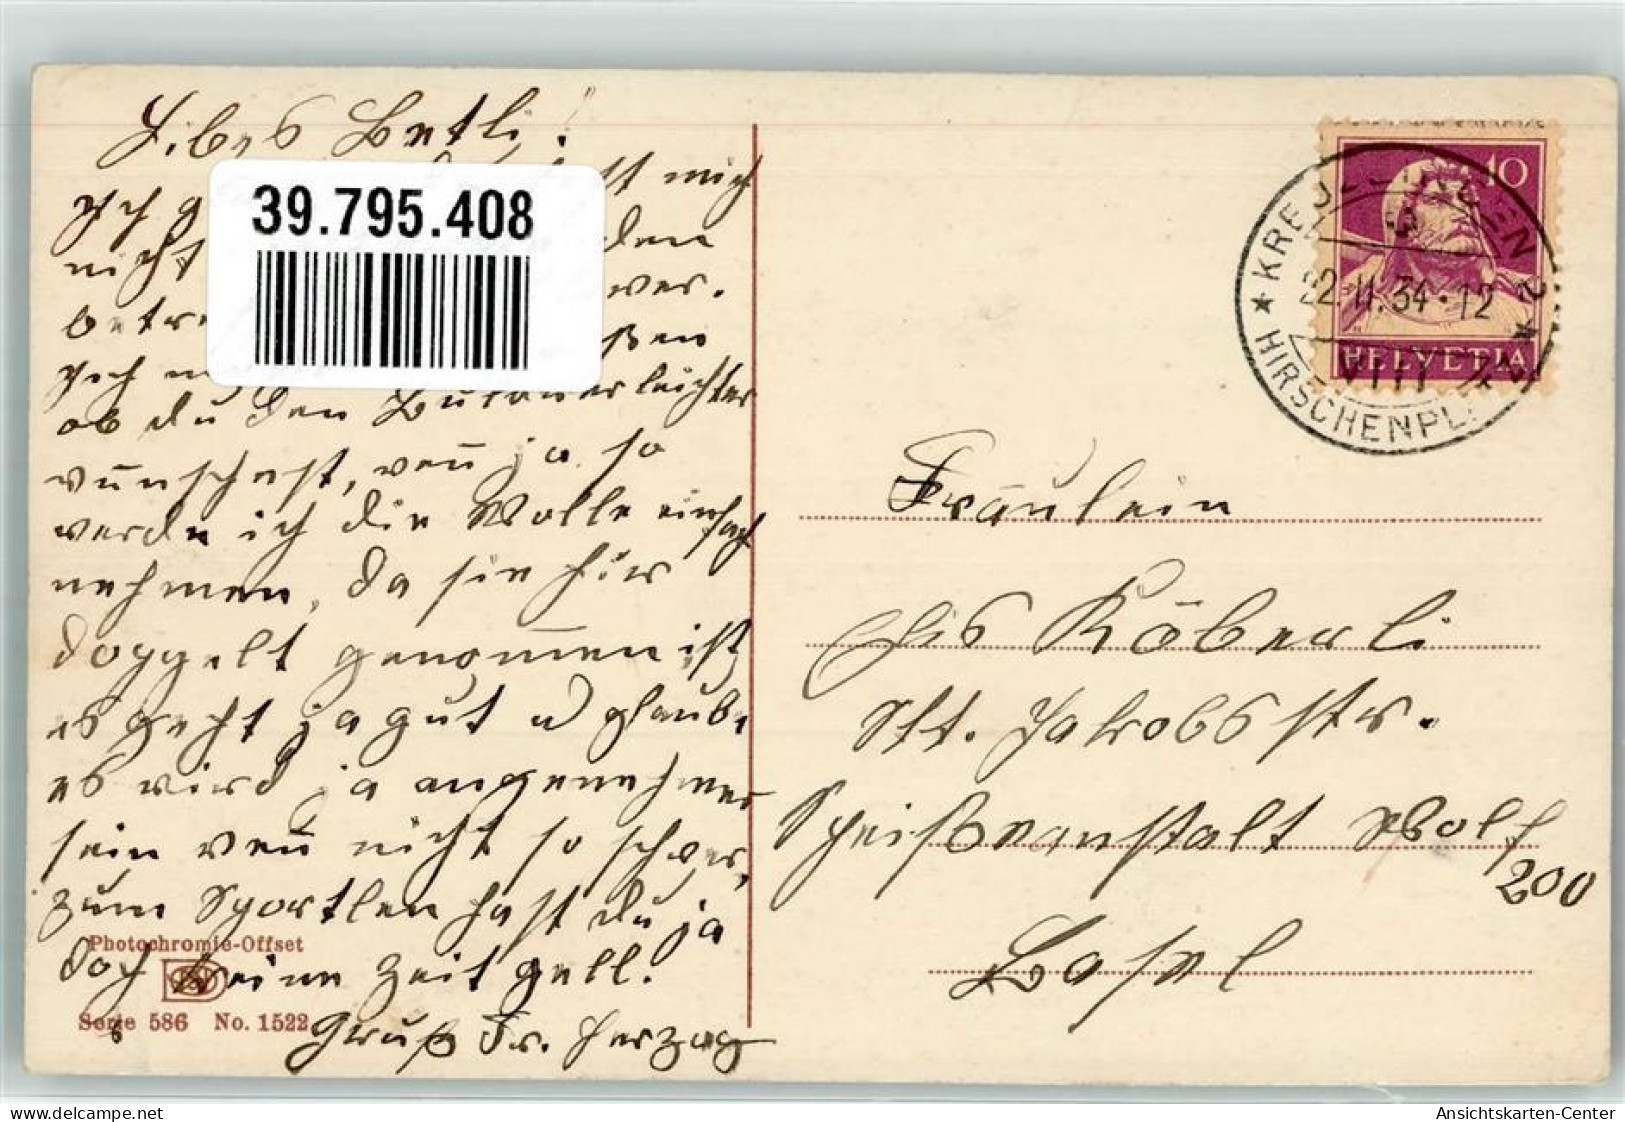 Libes Betli!
39.795.408
Ich g mich
nicht den
betr wer.
Ich
ob du den leichter
wünschest, wen̄ ja so
werde ich die Wolle einfach
nehmen, da sie hir
doppelt genom̄en ist
es geht ja gut u glaube
es wird ja angenehmer
sein wen̄ nicht so schwer,
zum Sportlen hast du ja
doch keine Zeit gell.
Gruß Fr. Herzog
Photochromie-Offset
Serie 586 No. 1522
10
HELVETIA
KREUZLINGEN 2
22.II.34-12
VIII
HIRSCHENPL.
Fräulein
Köberli
St. Jakobsstr.
Speißeanstalt Wolf
200
Basel
www.delcampe.net
Ansichtskarten-Center